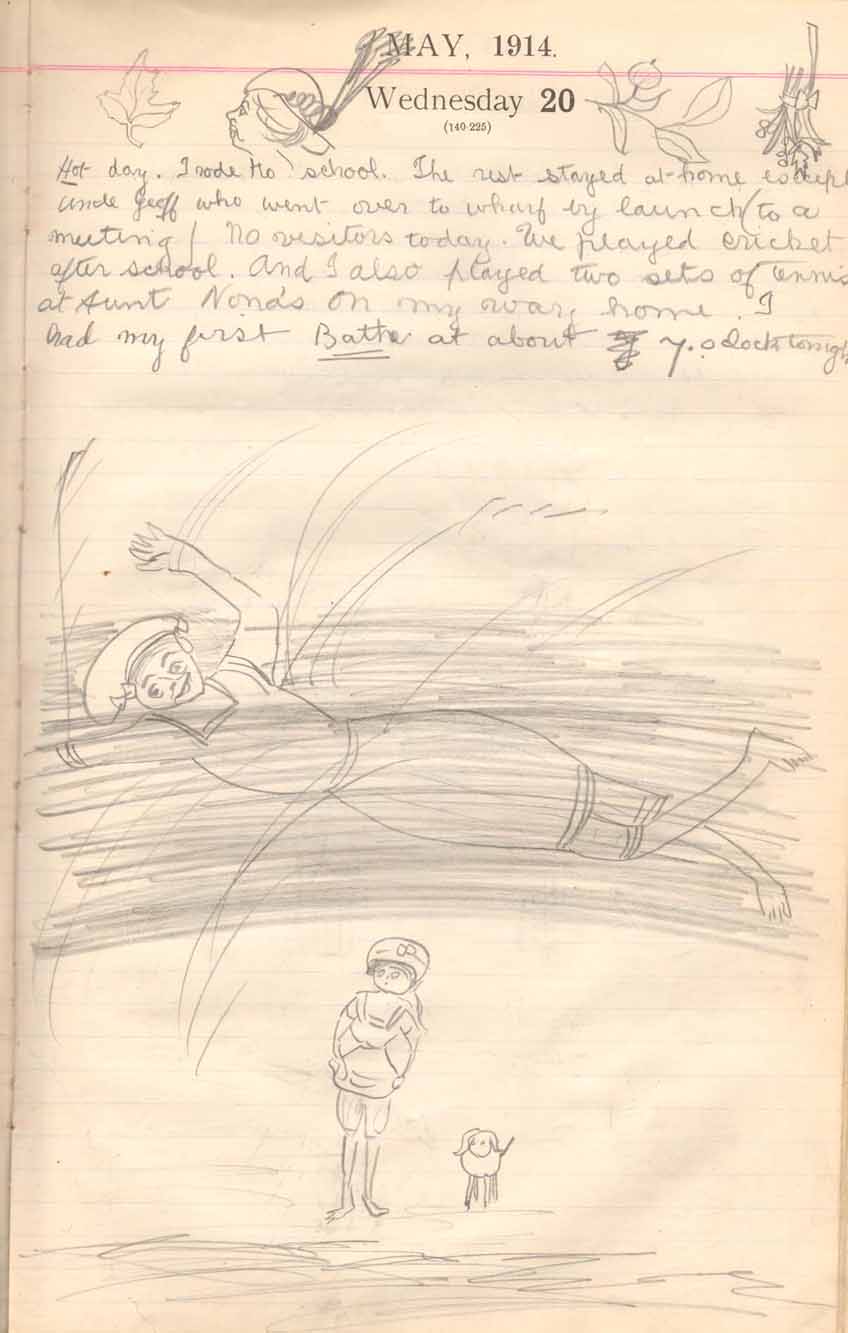 MAY, 1914.
Wednesday 20
(140-225)
Hot day. I rode to school. The rest stayed at home except
Uncle Geoff who went over to wharf by launch (to a
meeting) No visitors today. We played cricket
after school. And I also played two sets of tennis
at Aunt Nona's on my way home. I
had my first Bathe at about 7. oclock tonight